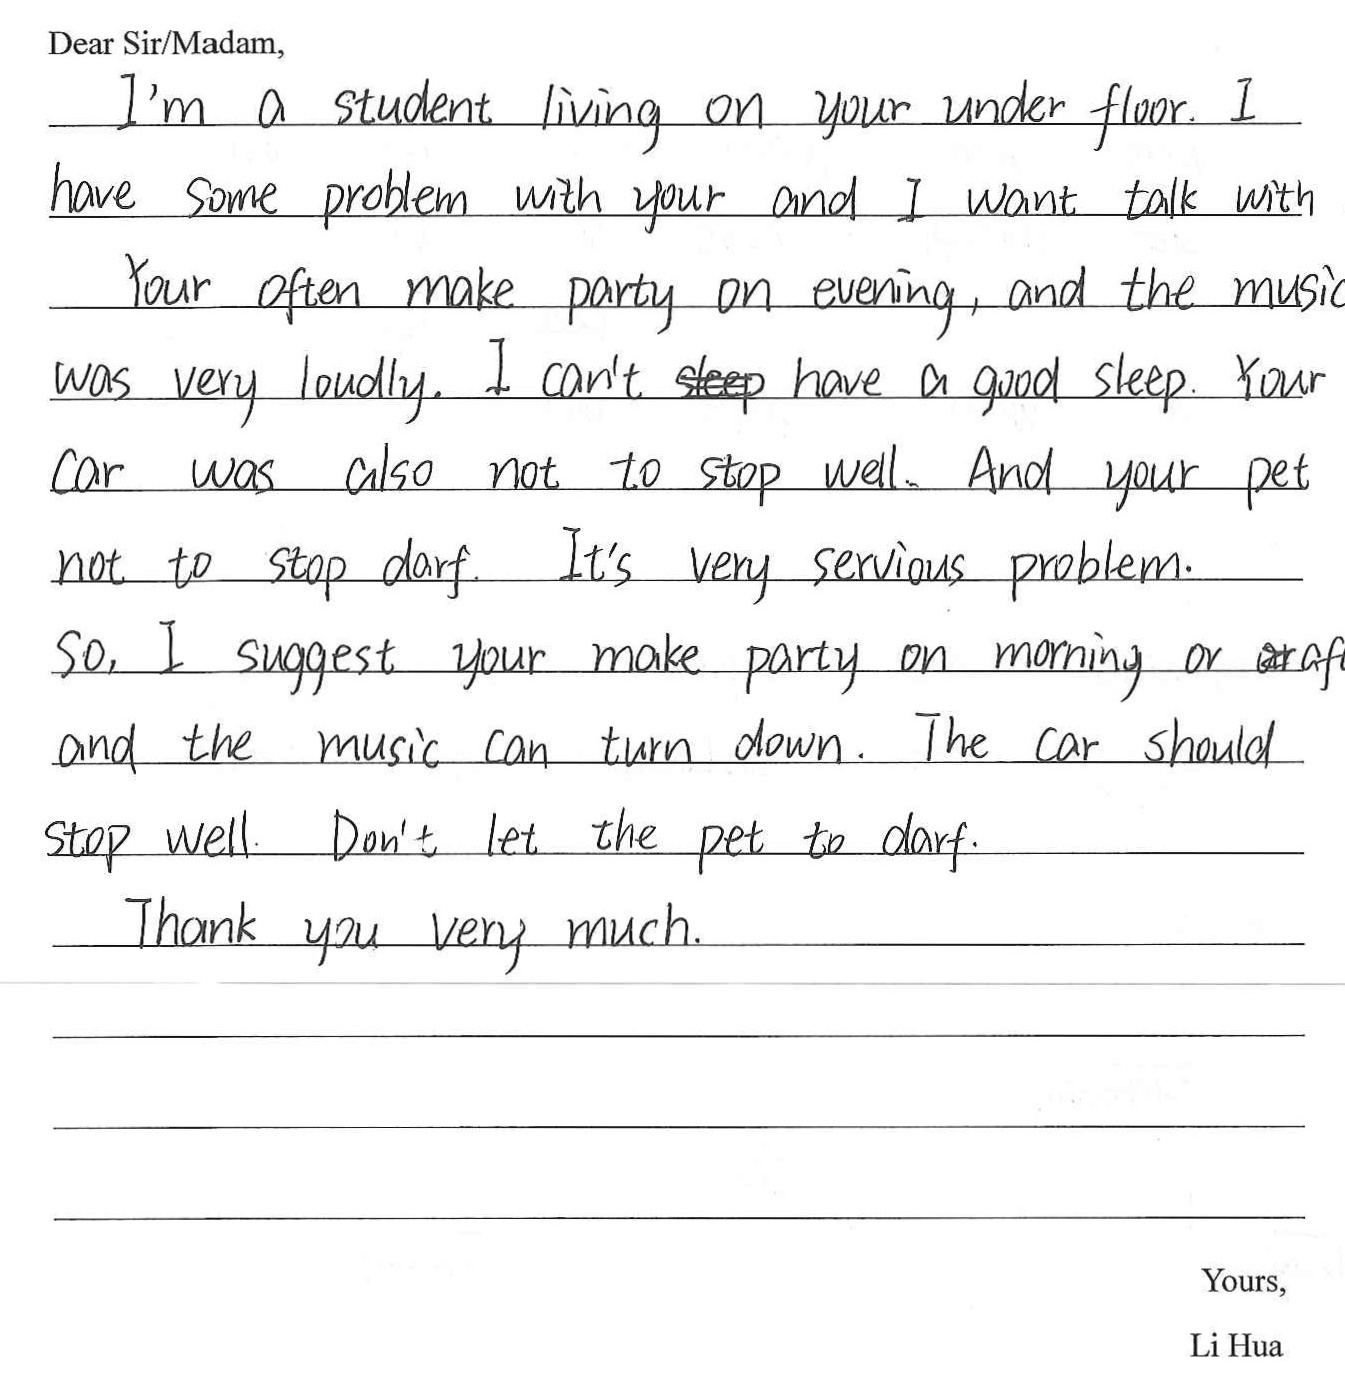 Dear Sir/Madam,
I'm a student living on your under floor. I
have some problem with your and I want talk with
Your often make party on evening, and the music
was very loudly. I can't sleep have a good sleep. Your
car was also not to stop well. And your pet
not to stop darf. It's very servious problem.
So, I suggest your make party on morning or
and the music can turn down. The car should
stop well. Don't let the pet to darf.
Thank you very much.
Yours,
Li Hua